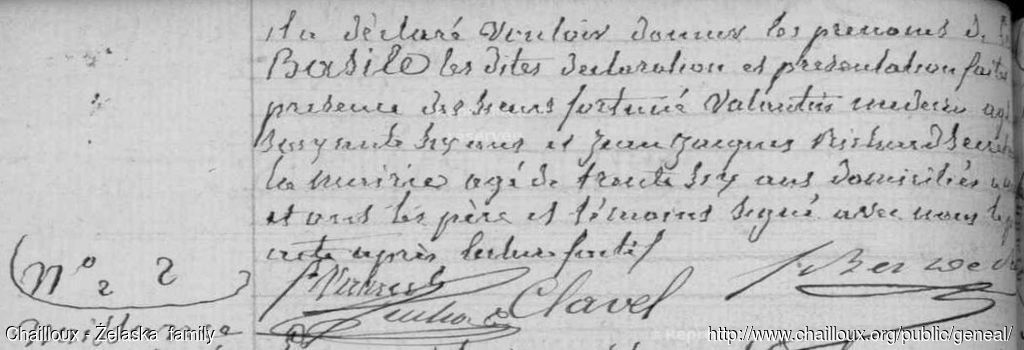 il a déclaré vouloir donner les prénoms de
Basile les dites déclaration et présentation faites
présence des sieurs fortuné Valantin medecin agé
soixante six ans et Jean Jacques Richard
la mairie agé de trente six ans domiciliés
et ont les père et témoins signé avec nous le
acte après lecture faite
Clavel
N° 2 2
Chailloux , Żelaska family
http://www.chailloux.org/public/geneal/